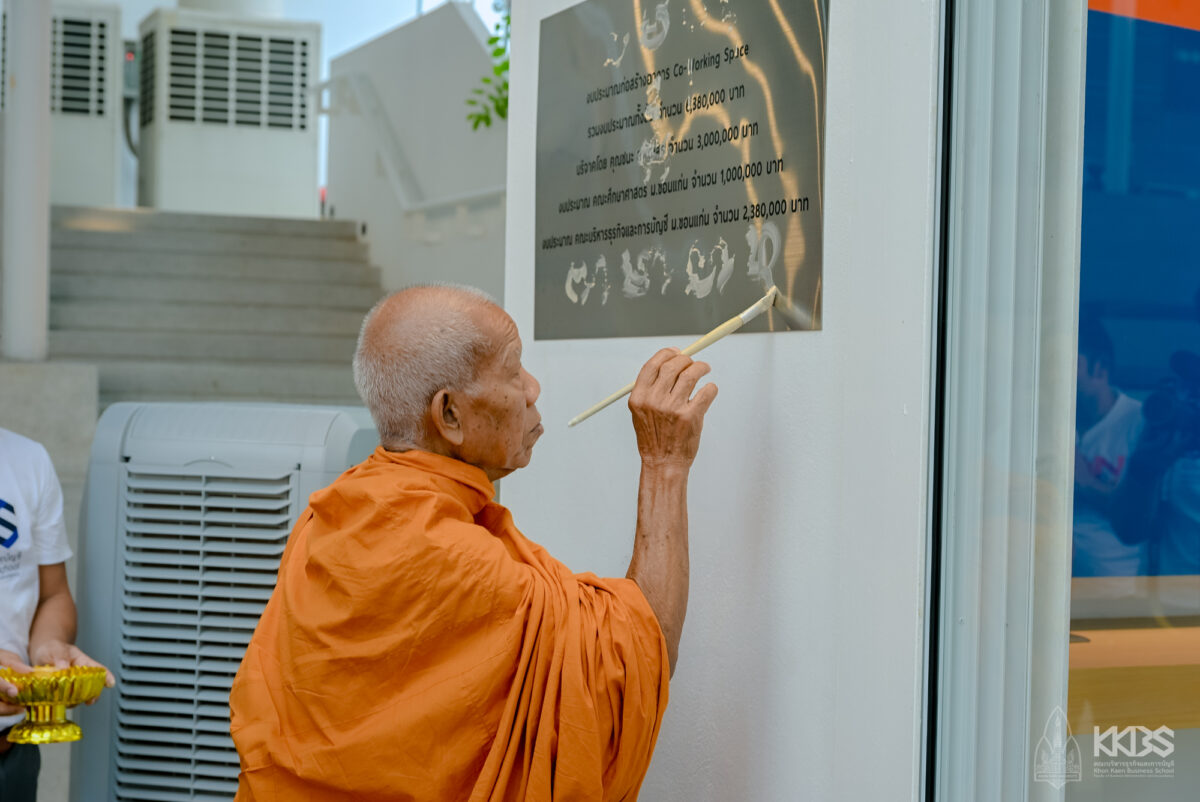 งบประมาณก่อสร้างอาคาร Co-Working Space
รวมงบประมาณทั้งสิ้น จำนวน 6,380,000 บาท
บริจาคโดย คุณชนะ จำนวน 3,000,000 บาท
งบประมาณ คณะศึกษาศาสตร์ ม.ขอนแก่น จำนวน 1,000,000 บาท
งบประมาณ คณะบริหารธุรกิจและการบัญชี ม.ขอนแก่น จำนวน 2,380,000 บาท
KKBS
คณะบริหารธุรกิจและการบัญชี
Khon Kaen Business School